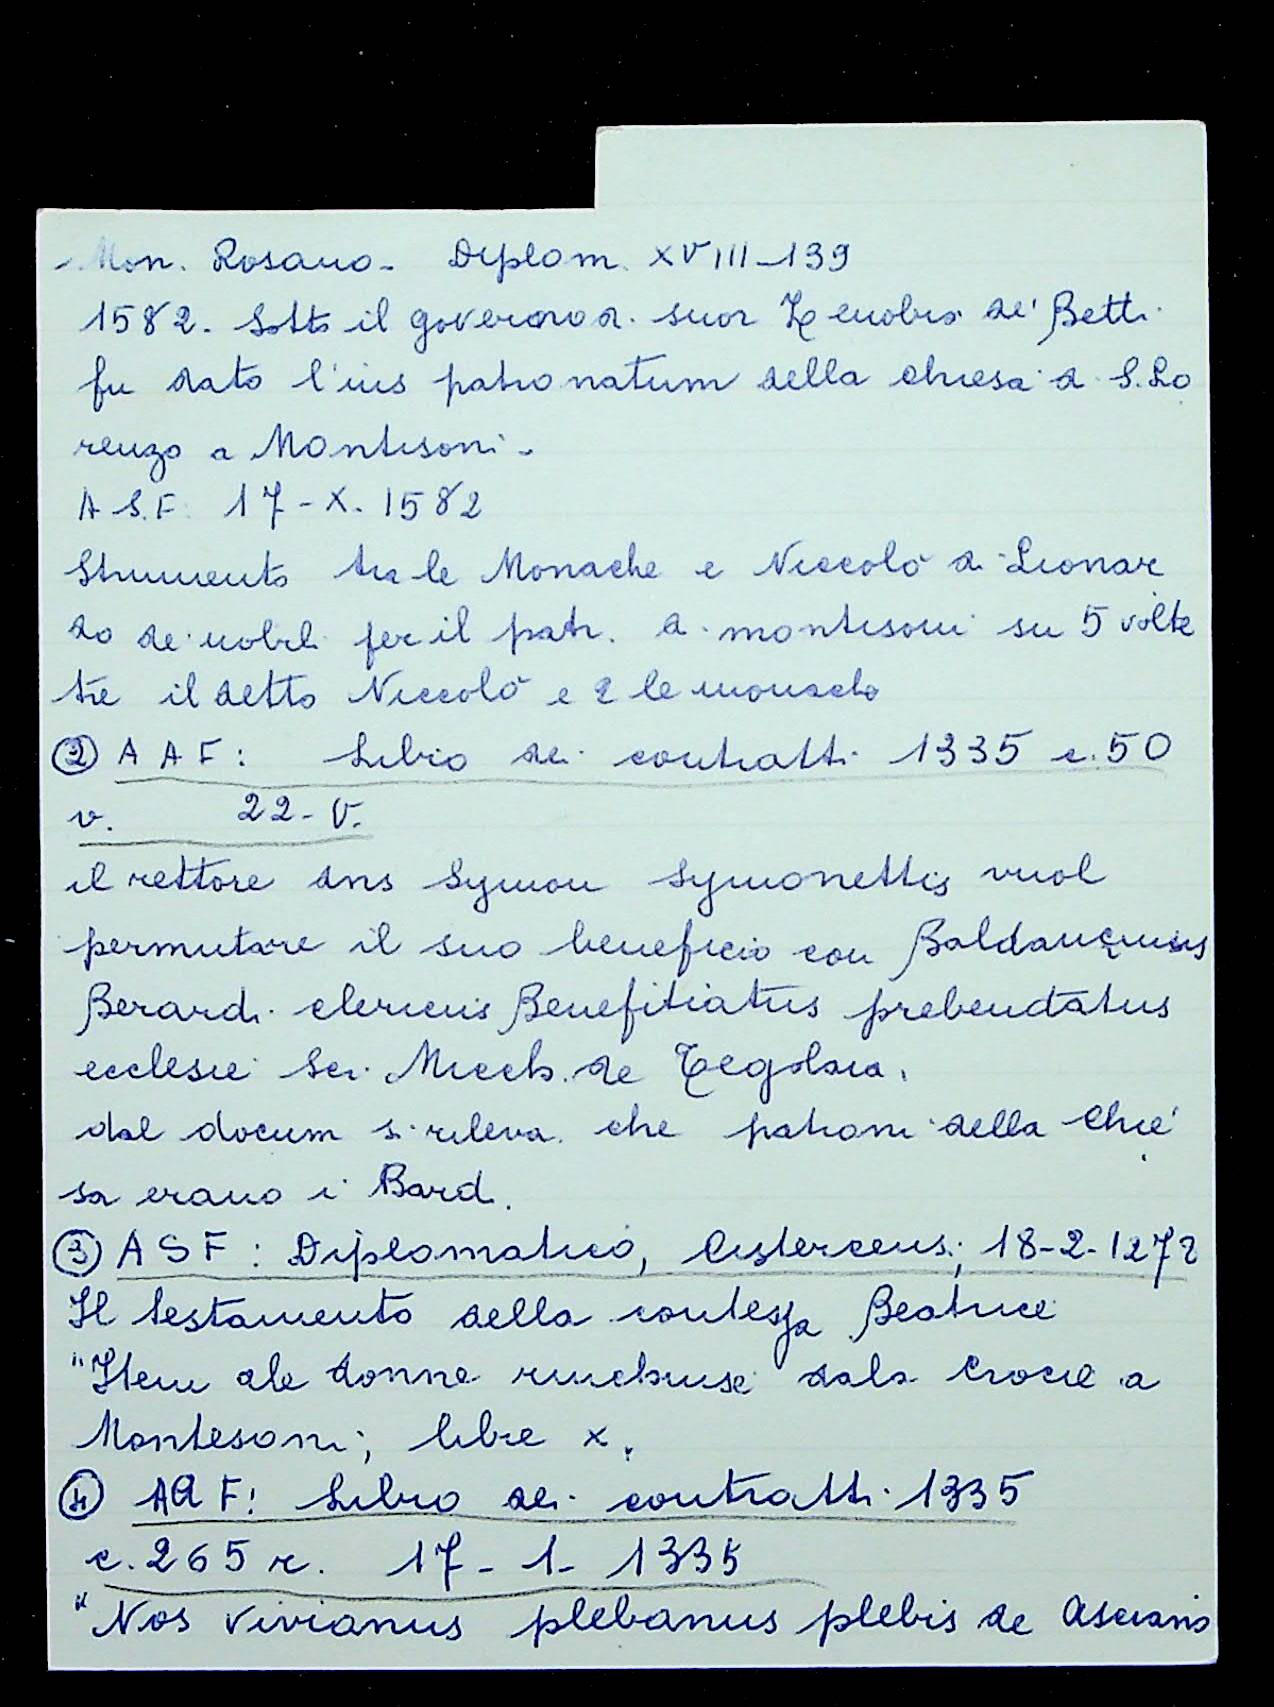 Mon. Rosano - Diplom. XVIII-139
1582. Sotto il governo di suor Zenobia de' Betti
fu dato l'ius patronatum della chiesa di S. Lo
renzo a Montisoni -
A.S.F. 17-X. 1582
Strumento tra le Monache e Niccolò di Lionar
do de nobili per il patr. di montisoni su 5 volte
tre il detto Niccolò e 2 le monache
② A A F: Libro dei contratti 1335 c. 50
v. 22-V.
il rettore dns Symon Symonettis vuol
permutare il suo beneficio con
Berardi clericus Benefitiatus prebendatus
ecclesie Sci. Micch. de Tegolaia.
dal docum si rileva che patroni della Chie
sa erano i Bardi.
③ A S F: Diplomatico, Cistercens.; 18-2-1272
Il testamento della contessa Beatrice
"Item ale donne rinchiuse dala Crocie a
Montesoni; libre x.
④ AAF: Libro dei contratti 1335
c. 265 r. 17-1-1335
"Nos Vivianus plebanus plebis de Asciano